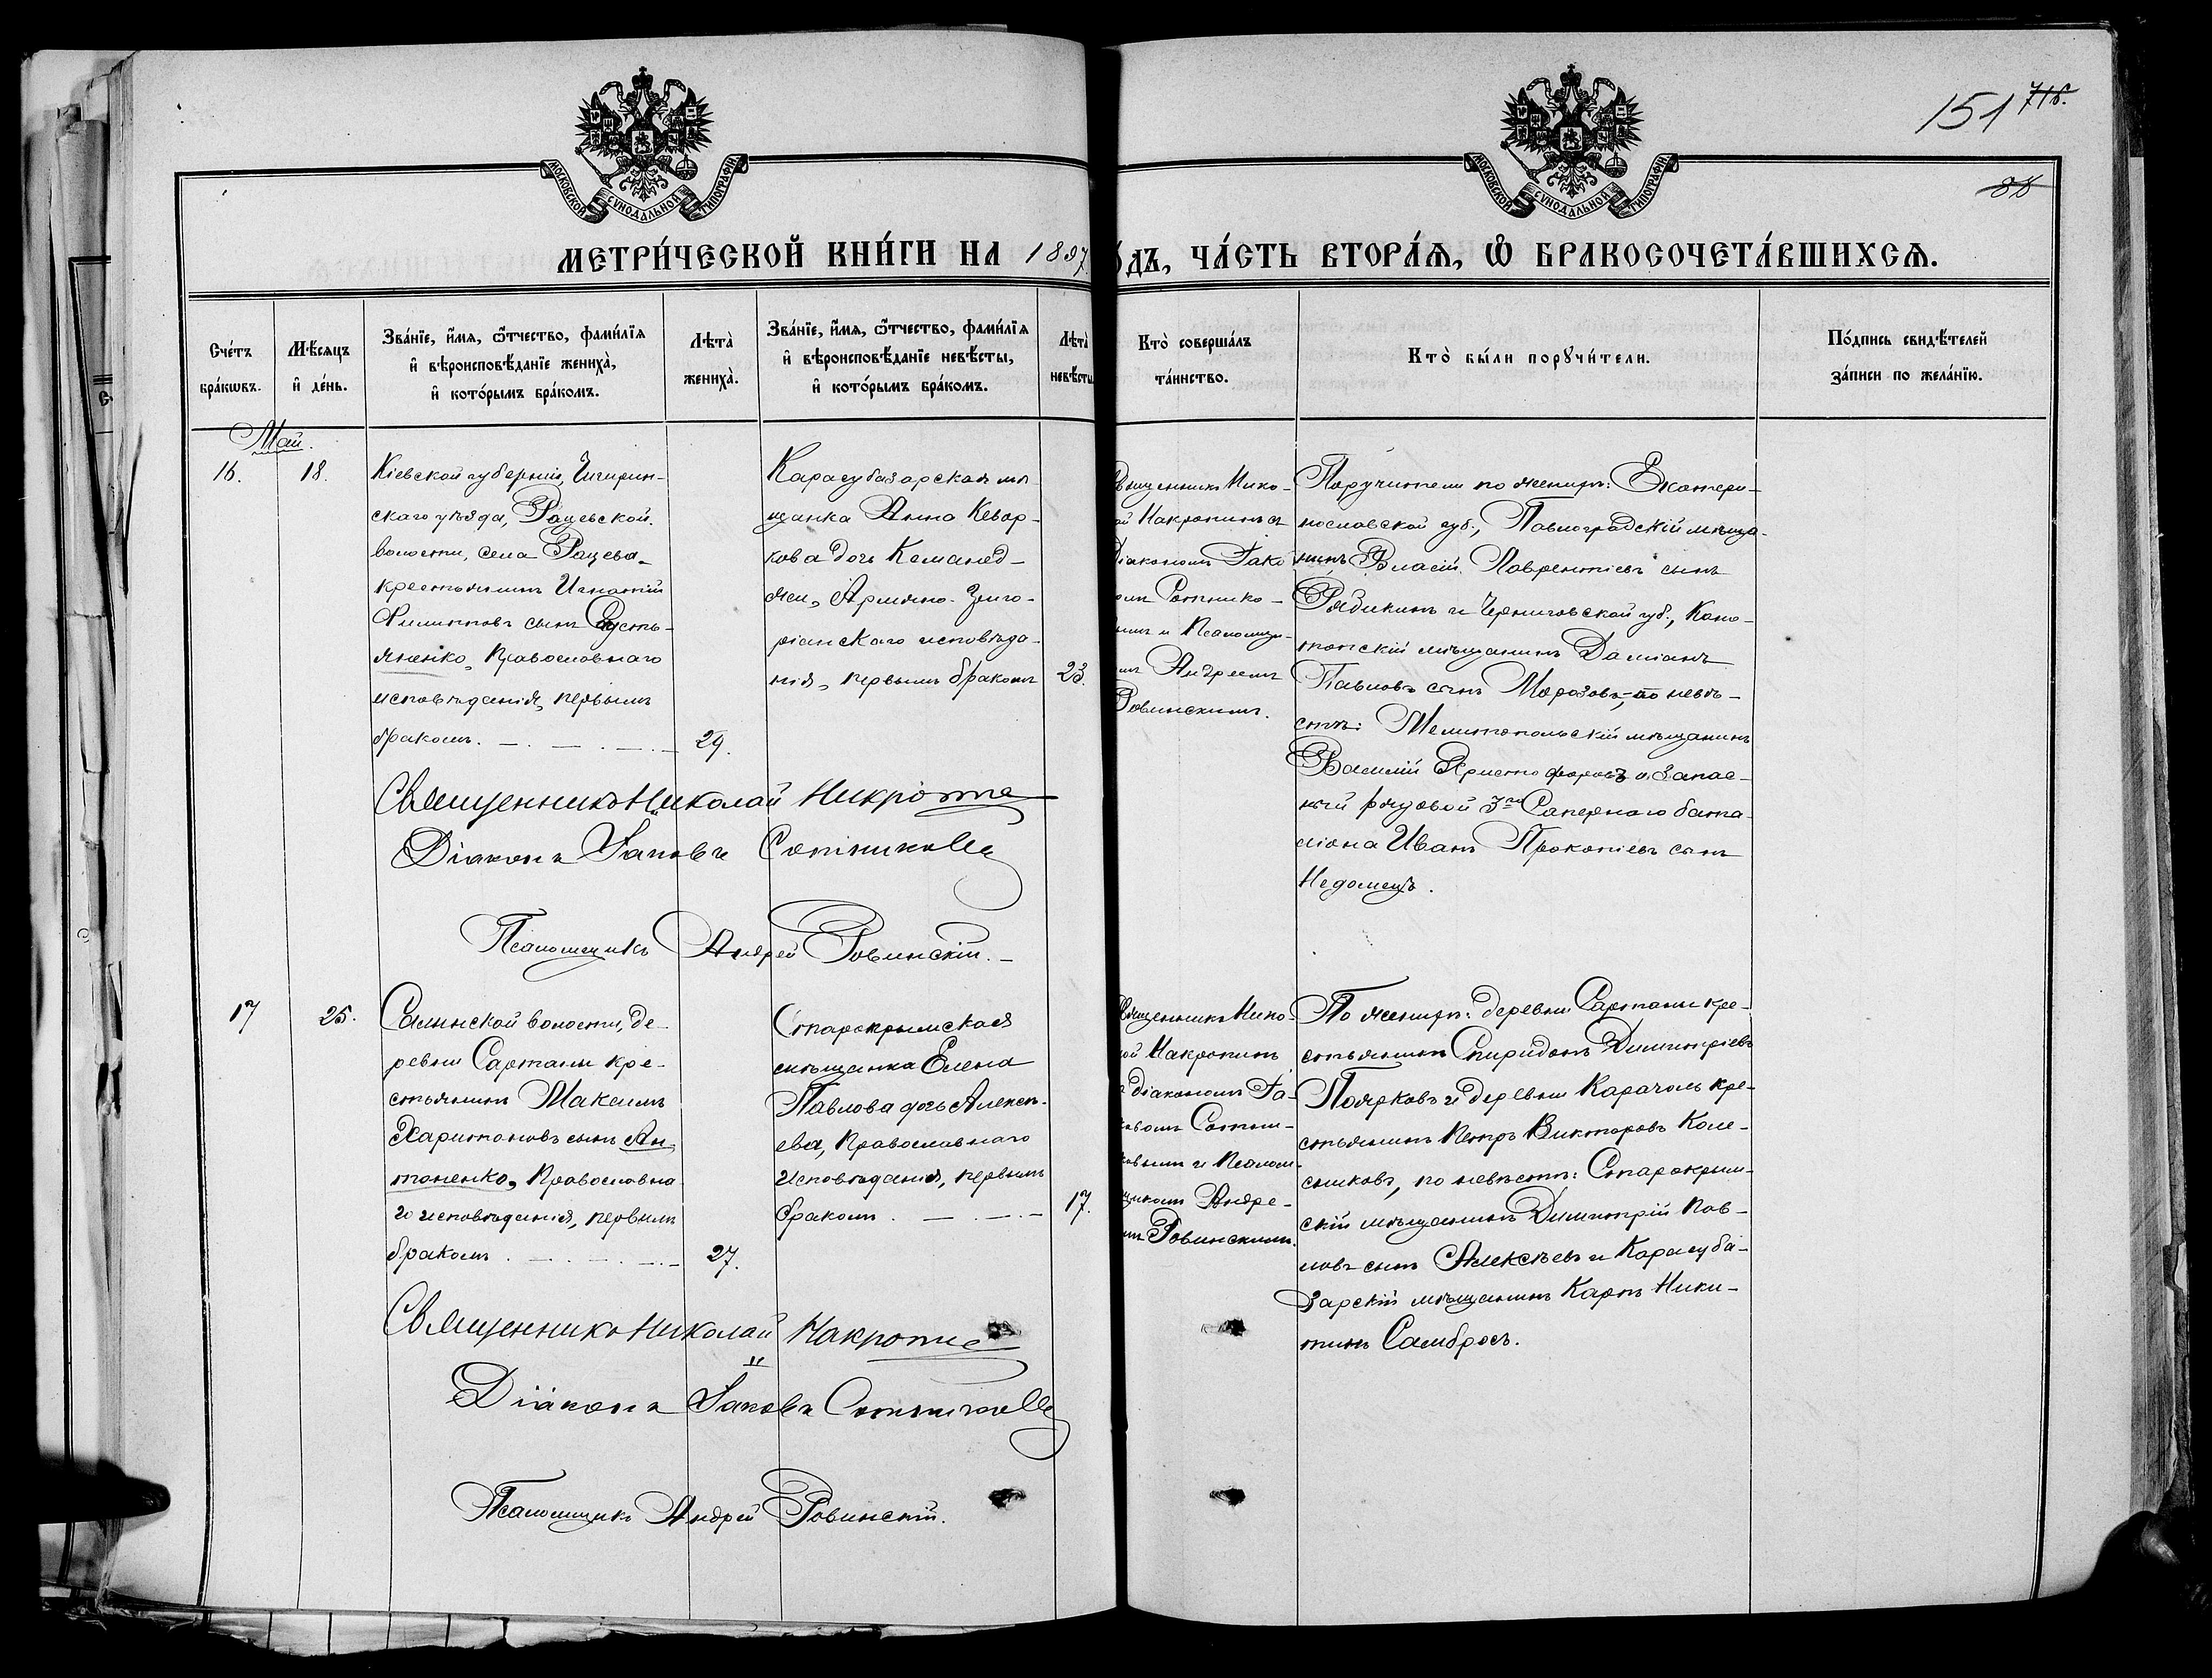 151 718.
88
МОСКОВСКОЙ СѴНОДАЛЬНОЙ ТИПОГРАФІИ
МОСКОВСКОЙ СѴНОДАЛЬНОЙ ТИПОГРАФІИ
МЕТРИ́ЧЕСКОЙ КНИ́ГИ НА 1897
О́ДЪ, ЧА́СТЬ ВТОРА́Ѧ, Ѽ БРАКОСОЧЕТА́ВШИХСѦ.
Сче́тъ
бра́кѡвъ.
Мѣ́сѧцъ
и҆ де́нь.
Зва́нїе, и҆́мѧ, ѻ҆́тчество, фами́лїѧ
и҆ вѣроисповѣ́данїе жениха̀,
и҆ кото́рымъ бра́комъ.
Лѣта̀
жениха̀.
Зва́нїе, и҆́мѧ, ѻ҆́тчество, фами́лїѧ
и҆ вѣроисповѣ́данїе невѣ́сты,
и҆ кото́рымъ бра́комъ.
Лѣта̀
невѣ́сты
Кто̀ соверша́лъ
та́инство.
Кто̀ бы́ли порꙋчи́тели.
По́дпись свидѣ́телей
за́писи по жела́нїю.
Май.
16.
18.
Кіевской губерніи, Чигирин-
скаго уѣзда, Рацевской
волости, села Рацева
крестьянинъ Игнатій
Филипповъ сынъ Густь-
яненко, Православнаго
исповѣданія, первымъ
бракомъ. — . — . — . —
29.
Карасубазарская мѣ
щанка Анна Кевор-
кова дочь Команед-
жи, Армяно-Григо-
ріанскаго исповѣда-
нія, первымъ бракомъ
23.
Священникъ Нико-
ай Накропинъ съ
Діакономъ Іако
омъ Сотнико-
ымъ и Псаломщи-
мъ Андреемъ
Ровинскимъ.
Поручители по женихѣ: Екатери-
нославской губ., Павлоградскій мѣща-
нинъ Власій Лаврентіевъ сынъ
Рябикинъ и Черниговской губ., Коно-
топскій мѣщанинъ Даміанъ
Павловъ сынъ Морозовъ, по невѣ-
стѣ: Мелитопольскій мѣщанинъ
Василій Христофоровъ и запас-
ный рядовой 3го Сапернаго бата-
ліона Иванъ Прокопіевъ сынъ
Священникъ Николай
Діаконъ Іаковъ Сотниковъ
Псаломщикъ Андрей Ровинскій. —
17
25.
Салынской волости, де-
ревни Сартаны кре-
стьянинъ Максимъ
Харитоновъ сынъ Ан-
тоненко, Православна
го исповѣданія, первымъ
бракомъ . — . — . — . —
27.
Старокрымская
мѣщанка Елена
Павлова дочь Алексѣ-
ева, Православнаго
исповѣданія, первымъ
бракомъ . — . — . —
17.
Священникъ Нико-
ай Накропинъ
и діакономъ Іа-
ковомъ Сотни-
ковымъ и Псалом-
щикомъ Андре-
мъ Ровинскимъ.
По женихѣ: деревни Сартаны кре-
стьянинъ Спиридонъ Димитріевъ
Поярковъ и деревни Карачоль кре-
стьянинъ Петръ Викторовъ Коле-
сниковъ, по невѣстѣ: Старокрым-
скій мѣщанинъ Димитрій Пав-
ловъ сынъ Алексѣевъ и Карасуба-
зарскій мѣщанинъ Карпъ Ники-
тинъ Самбросъ.
Священникъ Николай
Діаконъ Іаковъ Сотниковъ
Псаломщикъ Андрей Ровинскій.